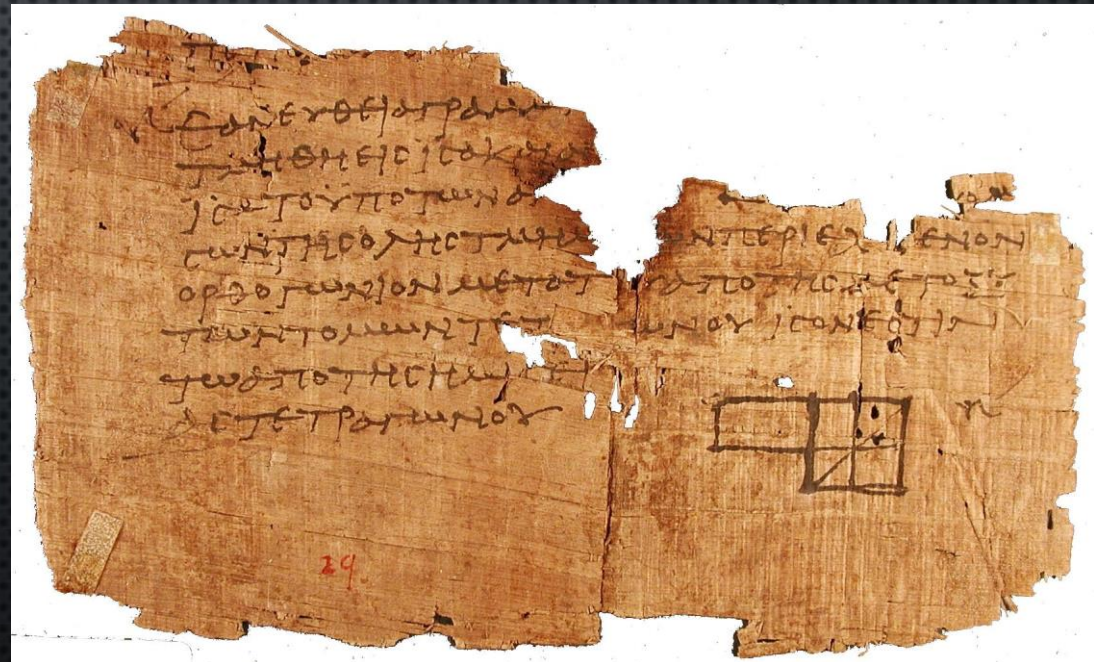 ΕΑΝ ΕΥΘΕΙΑ ΓΡΑΜΜ
ΤΜΗΘΗ ΕΙC ΙCΑ Κ
ΙCΑ ΤΟ ΥΠΟ ΤΩΝ Α
CΩΝ ΤΗC ΟΛΗC ΤΜΗ ΩΝ ΠΕΡΙΕΧ ΜΕΝΟΝ
ΟΡΘΟΓΩΝΙΟΝ ΜΕΤΑ Τ ΑΠΟ ΤΗC ΜΕΤΟΞΥ
ΤΩΝ ΤΟΜΩΝ ΤΕΤ ΩΝΟΥ ΙCΟΝ ΕCΤΙΝ
ΤΩ ΑΠΟ ΤΗC ΗΜΙ ΕΙ
ΑC ΤΕΤΡΑΓΩΝΟΥ
29